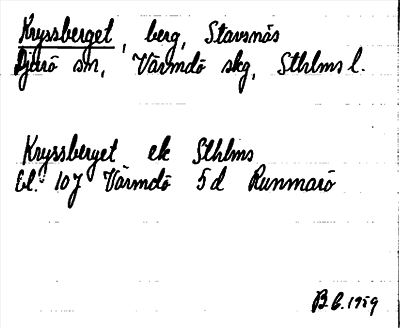 Kryssberget, berg, Stavsnäs
Djurö sn, Värmdö skg, Sthlms l.
Kryssberget ek Sthlms
bl. 10J Värmdö 5d Runmarö
B.C. 1959